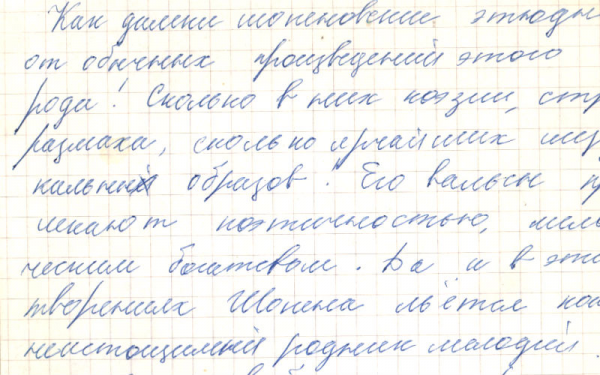 Как далеки шопеновские этюды
от обычных произведений этого
рода! Сколько в них поэзии, стр
размаха, сколько ярчайших муз
кальных образов! Его вальсы пр
лекают поэтичностью, мело
ческим богатством. Да и в эти
творениях Шопена льётся как
неистощимый родник мелодий.